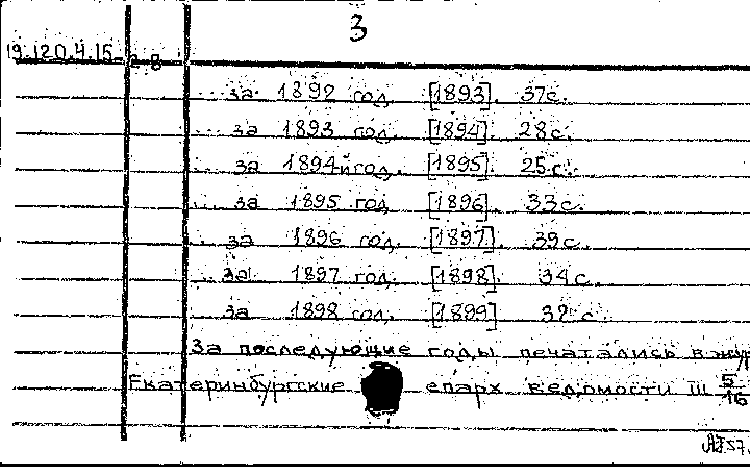 3
19.120.4.15-2.8
за 1892 год. [1893]. 37с.
за 1893 год. [1894]. 28с.
за 1894 год. [1895]. 25с.
за 1895 год [1896]. 33с.
за 1896 год. [1897]. 39с.
за 1897 год. [1898]. 34с.
за 1898 год. [1899]. 32с.
За последующие годы печатались в жур
Екатеринбургские епарх ведомости III 5/16